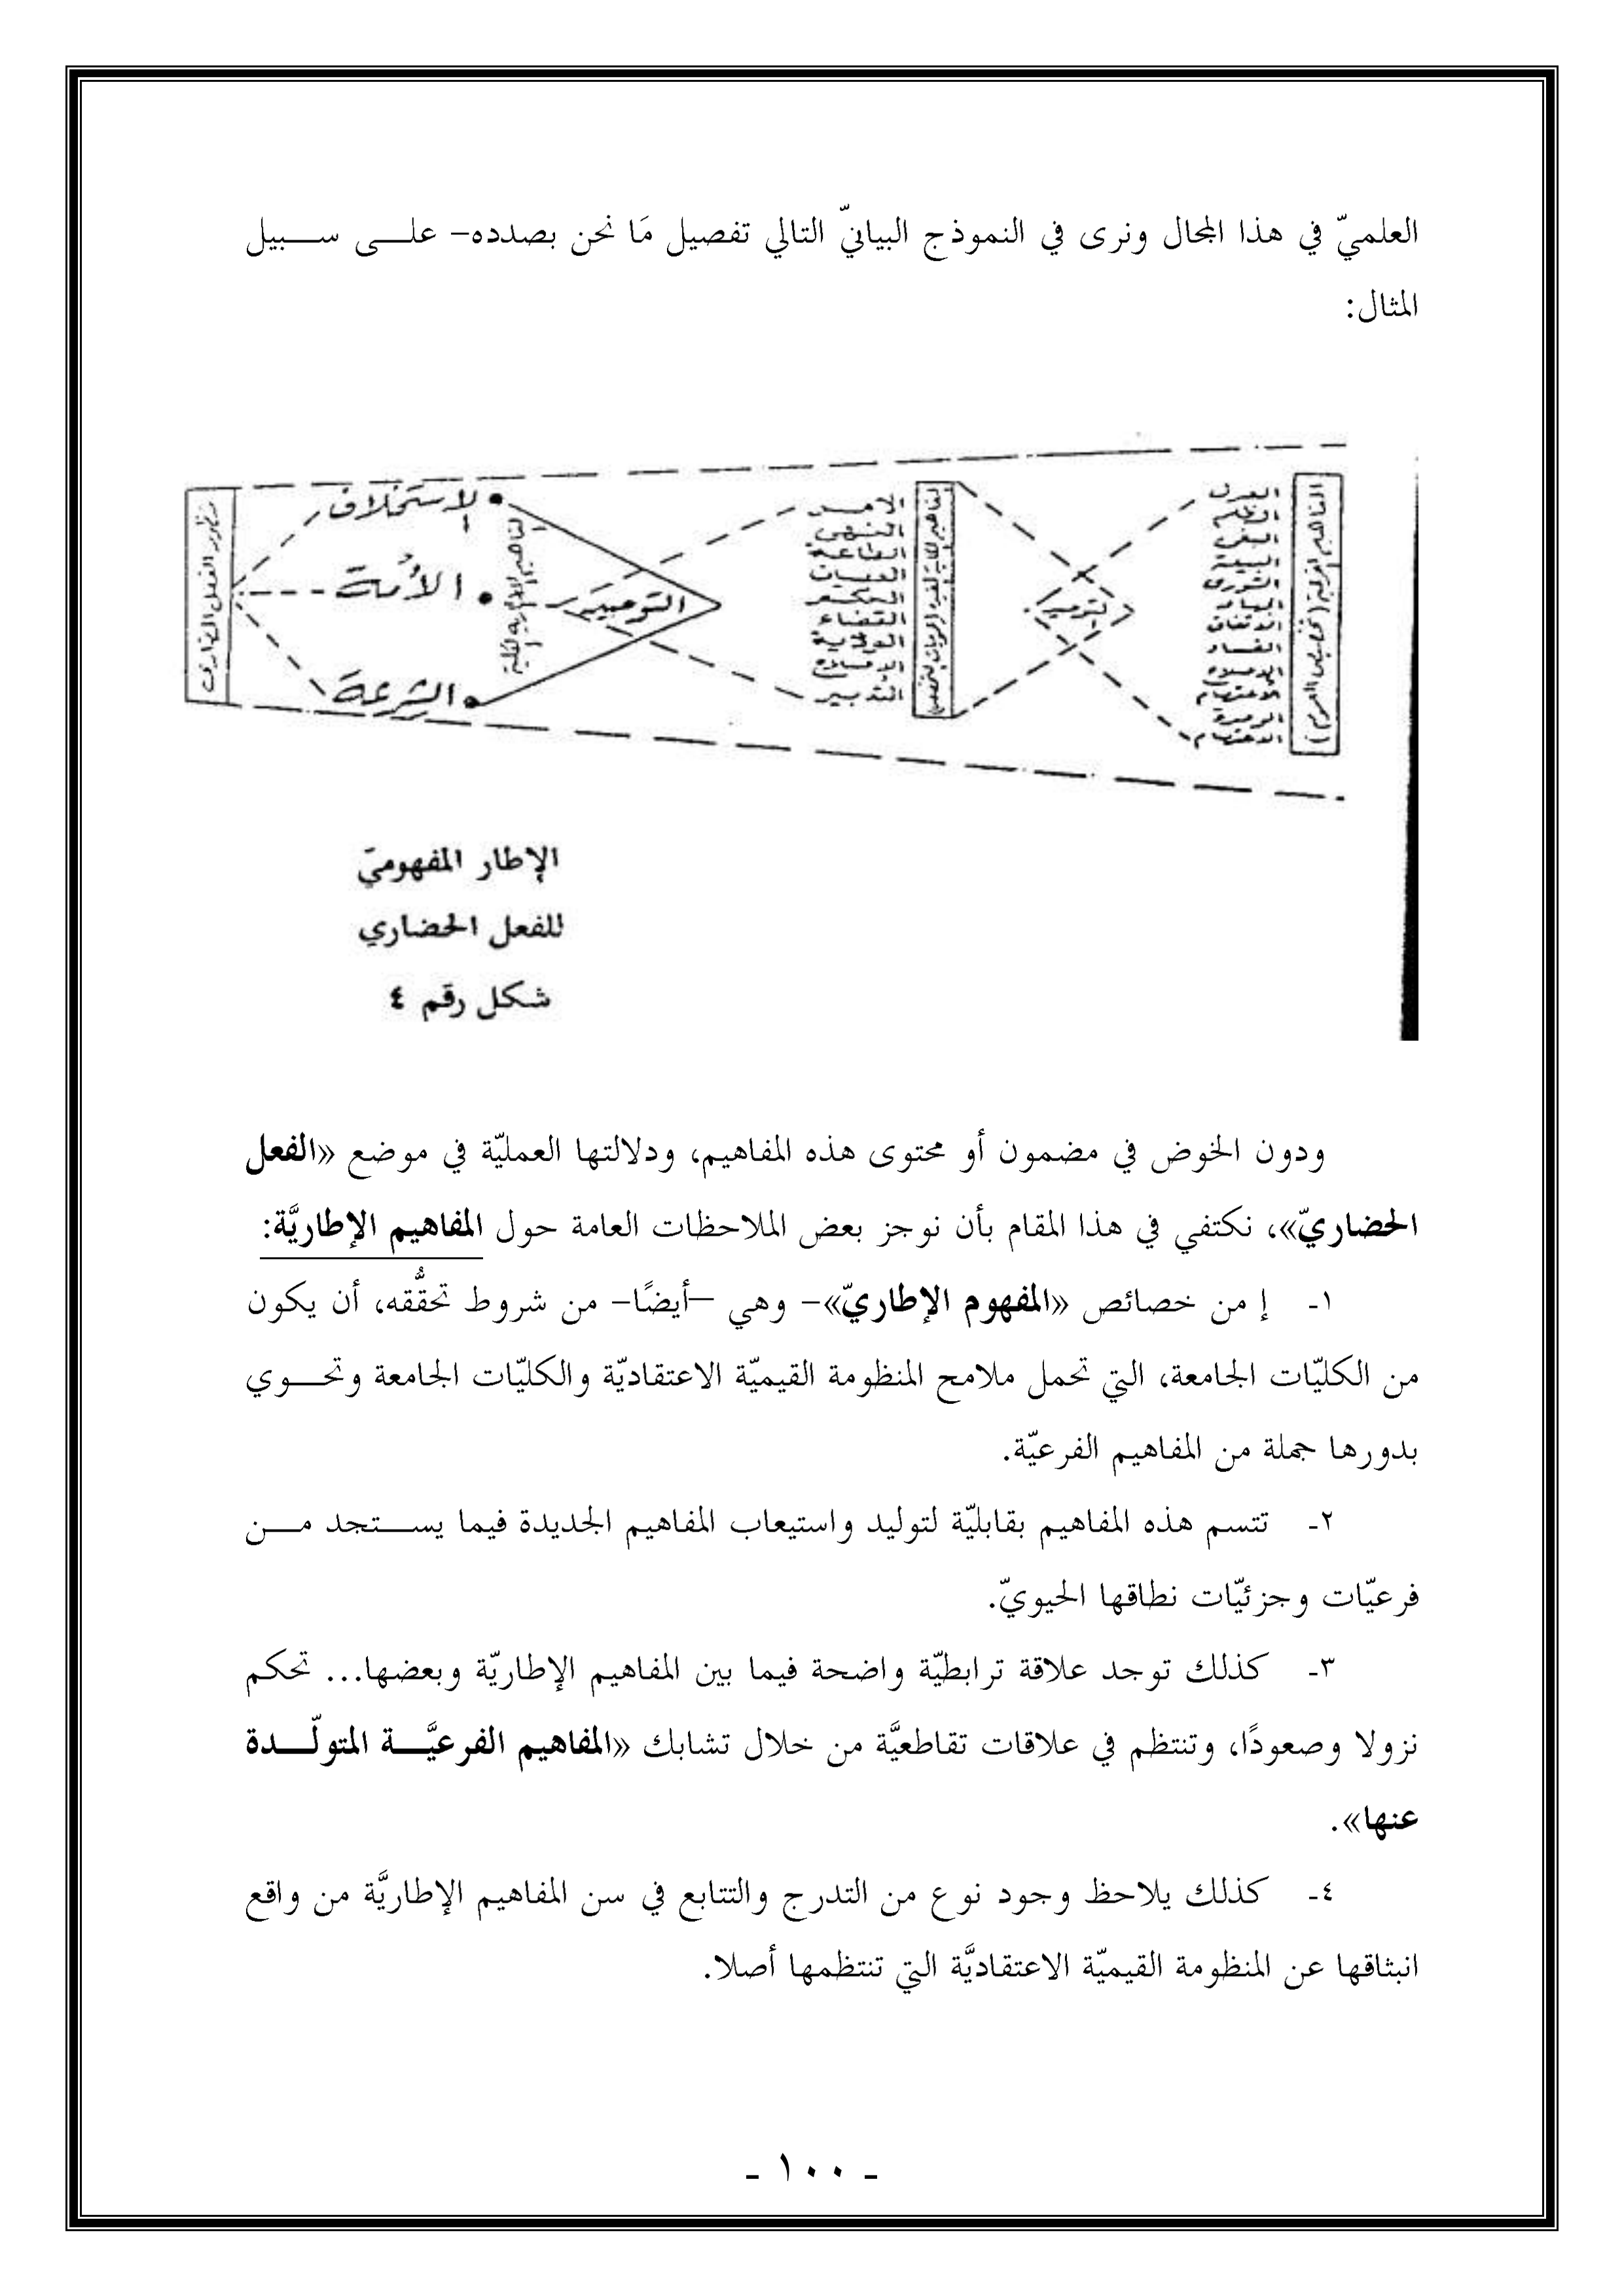 العلميّ في هذا المجال ونرى في النموذج البيانيّ التالي تفصيل مَا نحن بصدده– على سبيل
المثال:
العدل
الظلم
البيعة
الشورى
الفساد
الوحدة
الأمر
النهي
الطاعة
العصيان
الحكم
القضاء
الولاية
التدبير
التوحيد
الإستخلاف
الأمة
الشرعة
الإطار المفهوميّ
للفعل الحضاري
شكل رقم ٤
ودون الخوض في مضمون أو محتوى هذه المفاهيم، ودلالتها العمليّة في موضع «الفعل
الحضاريّ»، نكتفي في هذا المقام بأن نوجز بعض الملاحظات العامة حول المفاهيم الإطاريَّة:
١- إ من خصائص «المفهوم الإطاريّ»– وهي –أيضًا– من شروط تحقُّقه، أن يكون
من الكليّات الجامعة، التي تحمل ملامح المنظومة القيميّة الاعتقاديّة والكليّات الجامعة وتحوي
بدورها جملة من المفاهيم الفرعيّة.
٢- تتسم هذه المفاهيم بقابليّة لتوليد واستيعاب المفاهيم الجديدة فيما يستجد من
فرعيّات وجزئيّات نطاقها الحيويّ.
٣- كذلك توجد علاقة ترابطيّة واضحة فيما بين المفاهيم الإطاريّة وبعضها... تحكم
نزولا وصعودًا، وتنتظم في علاقات تقاطعيَّة من خلال تشابك «المفاهيم الفرعيَّة المتولّدة
عنها».
٤- كذلك يلاحظ وجود نوع من التدرج والتتابع في سن المفاهيم الإطاريَّة من واقع
انبثاقها عن المنظومة القيميّة الاعتقاديَّة التي تنتظمها أصلا.
- ١٠٠ -